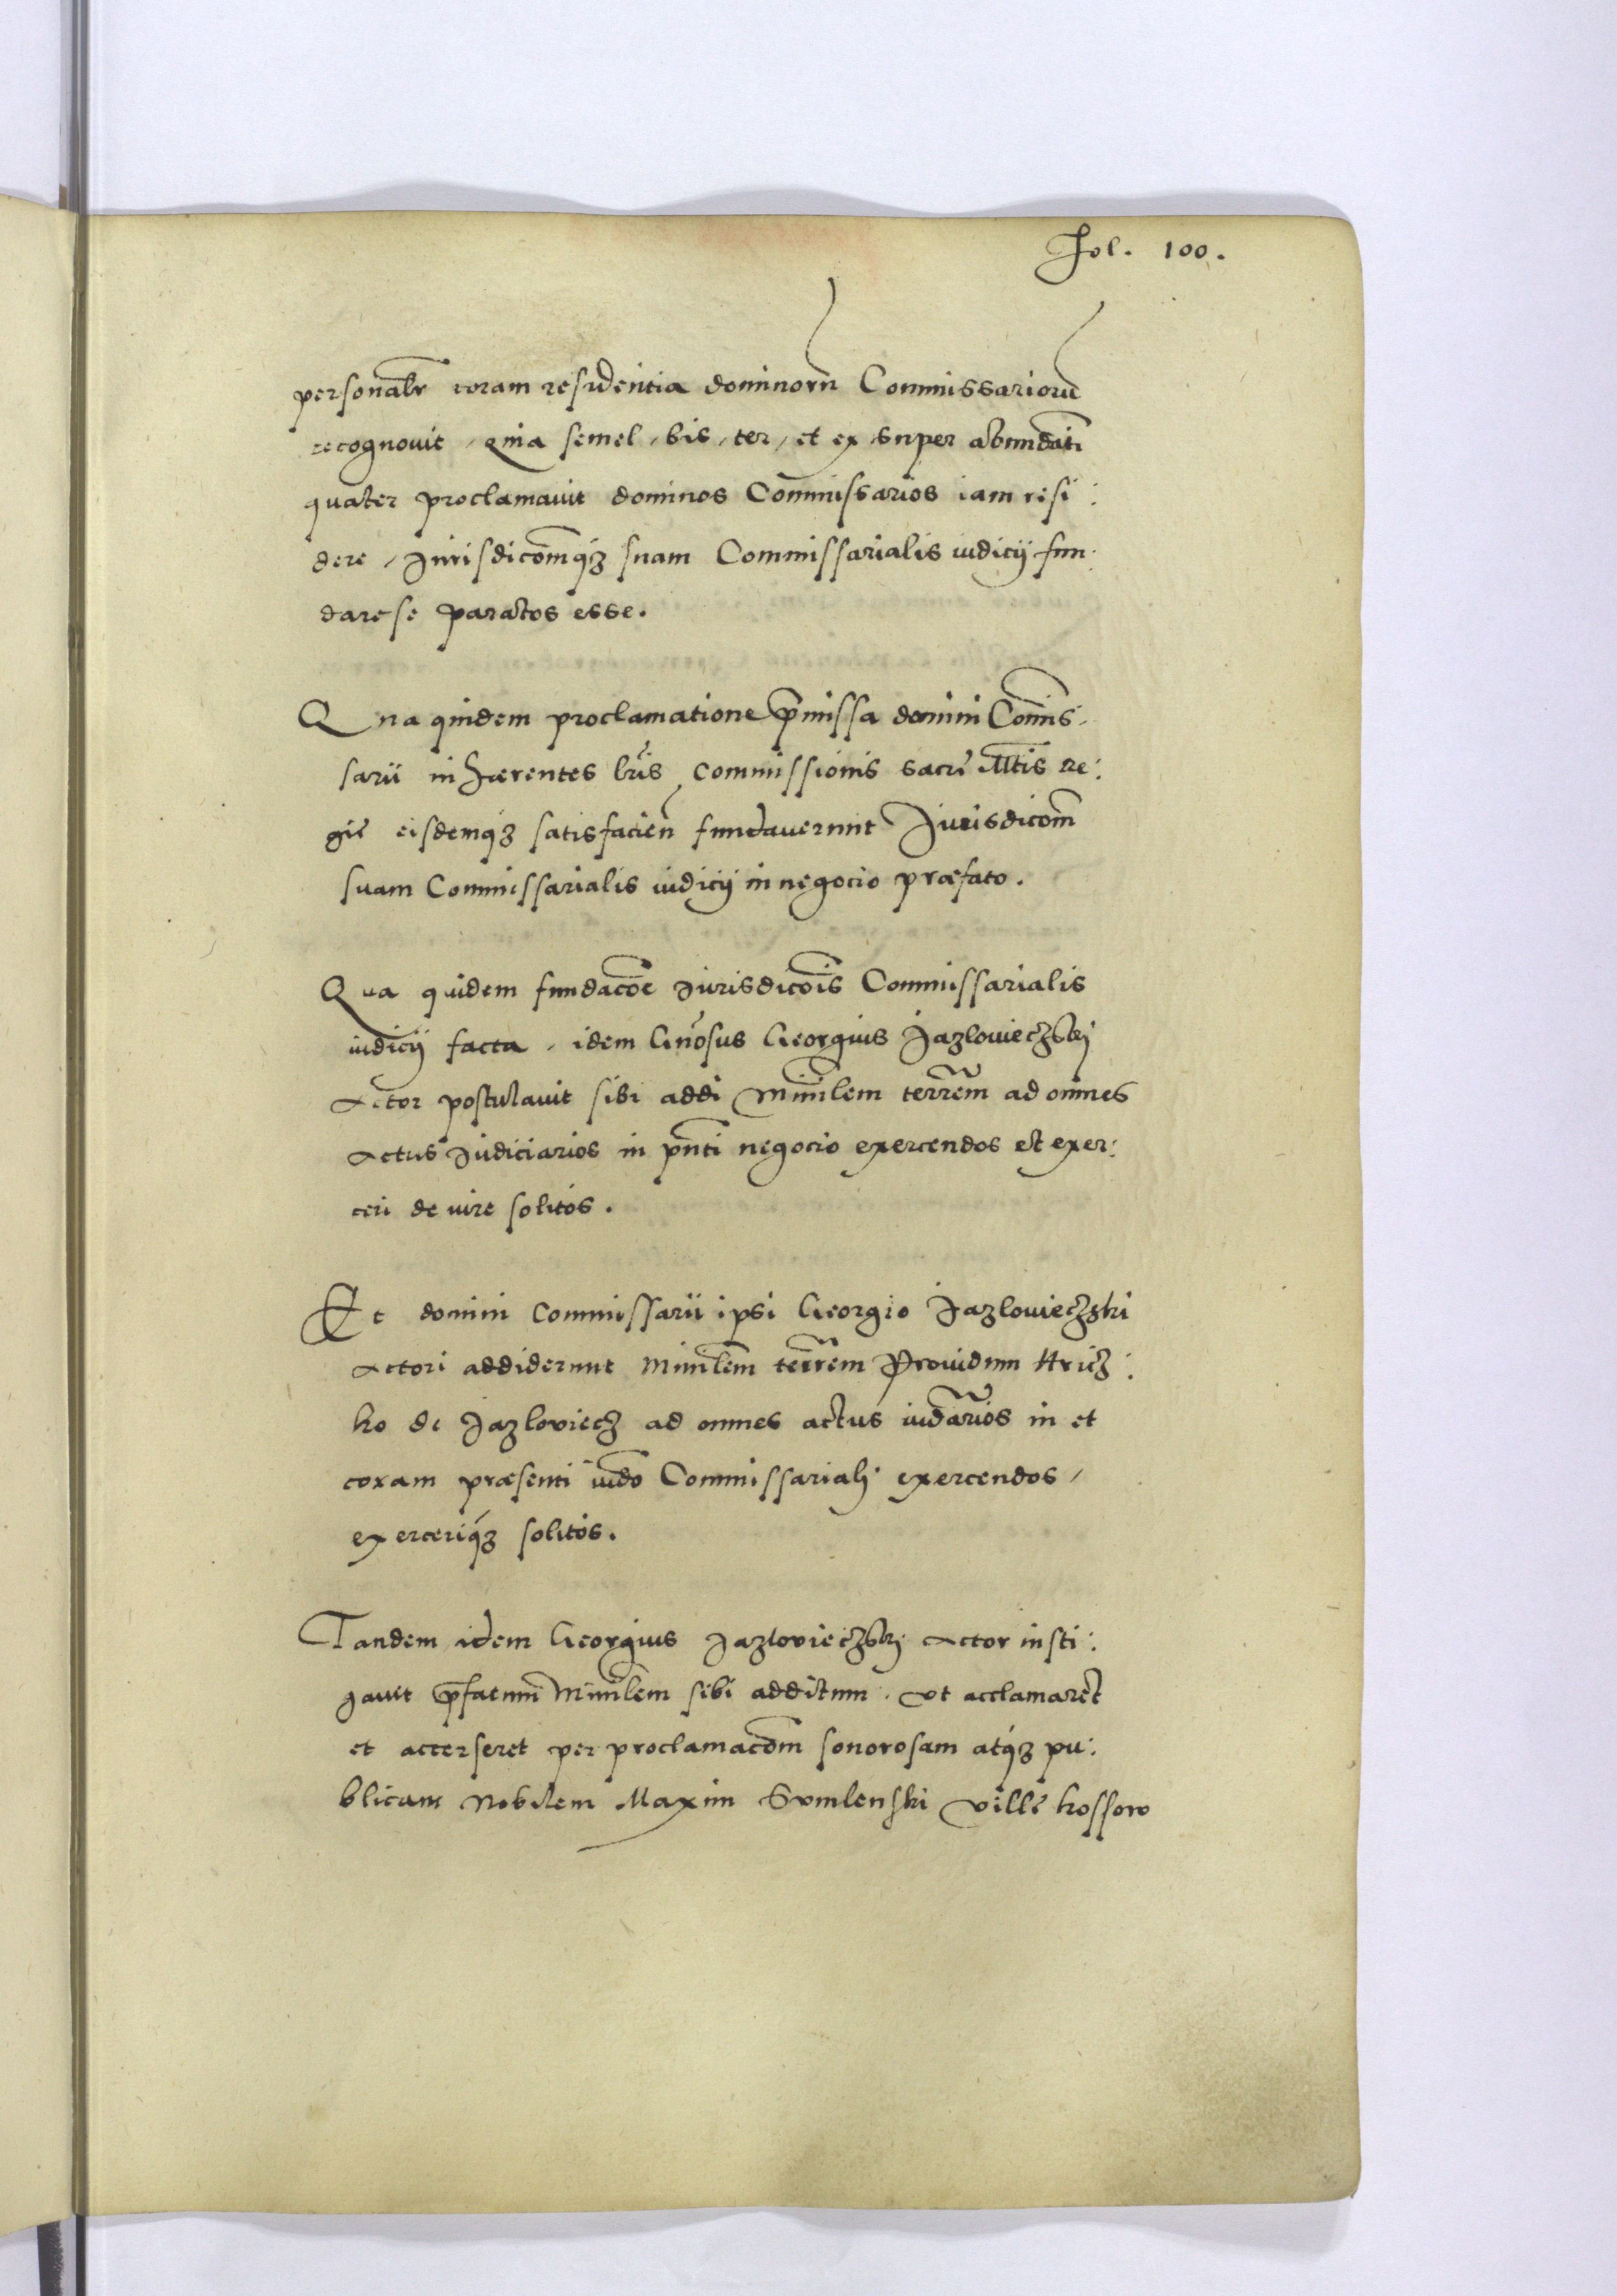 Fol. 100.
personalr coram residentia dominorũ Commissariorũ
recognovit, Quia semel, bis, ter, et ex super abundãti
quater proclamauit dominos Com̃missarios iam resi:
dere, Jurisdicõmq3 suam Commissarialis iudicij fun:
dare se paratos esse.
Qua quidem proclamatione p̃missa domini Com̃is:
sarii inhærentes lr̃is Commissionis sacrę Mt̃is Re:
gię eisdemq3 satisfacień fundauerunt Jurisdicõm
suam Commissarialis iudicij in negocio præfato.
Qua quidem fundacõe Jurisdicõis Commissarialis
iudicij facta, idem Gñosus Georgius Jazlowieczski
Actor postulauit sibi addi Minr̃lem terr̃em ad omnes
Actus Judiciarios in pñti negocio exercendos et exer:
ceri de iure solitos.
Et domini Commissarii ipsi Georgio Jazlowieczski
Actori addiderunt Minr̃lem terr̃em Prouidum Hricz:
ko de Jazlowiecz ad omnes actus iud̃arios in et
coram præsenti iud̃o Commissariali exercendos,
exerceriq3 solitos.
Tandem idem Georgius Jazlowieczski Actor insti:
gauit p̃fatum Minr̃lem sibi additum, vt acclamaret
et accerseret per proclamacõm sonorosam atq3 pu:
blicam Nobilem Maxim Sumlenski villę Kossow